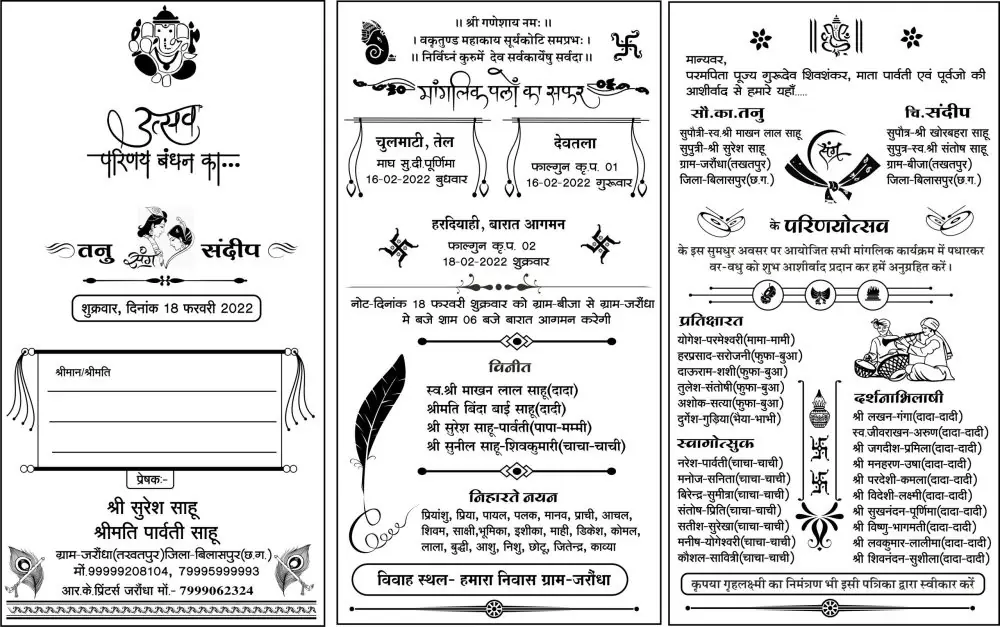 उत्सव
परिणय बंधन का...
तनु
संग
संदीप
शुक्रवार, दिनांक 18 फरवरी 2022
श्रीमान/श्रीमति
प्रेषकः-
श्री सुरेश साहू
श्रीमति पार्वती साहू
ग्राम-जरौंधा(तखतपुर)जिला-बिलासपुर(छ.ग.)
मों.99999208104, 79995999993
आर.के.प्रिंटर्स जरौंधा मों.- 7999062324
॥ श्री गणेशाय नमः ॥
। वक्रतुण्ड महाकाय सूर्यकोटि समप्रभः ।
॥ निर्विघ्नं कुरुमें देव सर्वकार्येषु सर्वदा ॥
मांगलिक पलों का सफर
चुलमाटी, तेल
माघ सु.दी.पूर्णिमा
16-02-2022 बुधवार
देवतला
फाल्गुन कृ.प. 01
16-02-2022 गुरूवार
हरदियाही, बारात आगमन
फाल्गुन कृ.प. 02
18-02-2022 शुक्रवार
नोट-दिनांक 18 फरवरी शुक्रवार को ग्राम-बीजा से ग्राम-जरौंधा
मे बजे शाम 06 बजे बारात आगमन करेगी
विनीत
स्व.श्री माखन लाल साहू(दादा)
श्रीमति बिंदा बाई साहू(दादी)
श्री सुरेश साहू-पार्वती(पापा-मम्मी)
श्री सुनील साहू-शिवकुमारी(चाचा-चाची)
निहारते नयन
प्रियांशु, प्रिया, पायल, पलक, मानव, प्राची, आचल,
शिवम, साक्षी,भूमिका, इशीका, माही, डिकेश, कोमल,
लाला, बुद्धी, आशु, निशु, छोटू, जितेन्द्र, काव्या
विवाह स्थल- हमारा निवास ग्राम-जरौंधा
मान्यवर,
परमपिता पूज्य गुरूदेव शिवशंकर, माता पार्वती एवं पूर्वजो की
आशीर्वाद से हमारे यहाँ.....
सौ.का.तनु
सुपौत्री-स्व.श्री माखन लाल साहू
सुपुत्री-श्री सुरेश साहू
ग्राम-जरौंधा(तखतपुर)
जिला-बिलासपुर(छ.ग.)
संग
चि.संदीप
सुपौत्र-श्री खोरबहरा साहू
सुपुत्र-स्व.श्री संतोष साहू
ग्राम-बीजा(तखतपुर)
जिला-बिलासपुर(छ.ग.)
के परिणयोत्सव
के इस सुमधुर अवसर पर आयोजित सभी मांगलिक कार्यक्रम में पधारकर
वर-वधु को शुभ आशीर्वाद प्रदान कर हमें अनुग्रहित करें ।
प्रतिक्षारत
योगेश-परमेश्वरी(मामा-मामी)
हरप्रसाद-सरोजनी(फुफा-बुआ)
दाऊराम-शशी(फुफा-बुआ)
तुलेश-संतोषी(फुफा-बुआ)
अशोक-सत्या(फुफा-बुआ)
दुर्गेश-गुड़िया(भैया-भाभी)
स्वागोत्सुक
नरेश-पार्वती(चाचा-चाची)
मनोज-सनिता(चाचा-चाची)
बिरेन्द्र-सुमीत्रा(चाचा-चाची)
संतोष-प्रिति(चाचा-चाची)
सतीश-सुरेखा(चाचा-चाची)
मनीष-योगेश्वरी(चाचा-चाची)
कौशल-सावित्री(चाचा-चाची)
दर्शनाभिलाषी
श्री लखन-गंगा(दादा-दादी)
स्व.जीवराखन-अरुण(दादा-दादी)
श्री जगदीश-प्रमिला(दादा-दादी)
श्री मनहरण-उषा(दादा-दादी)
श्री परदेशी-कमला(दादा-दादी)
श्री विदेशी-लक्ष्मी(दादा-दादी)
श्री सुखनंदन-पूर्णिमा(दादा-दादी)
श्री विष्णु-भागमती(दादा-दादी)
श्री लवकुमार-लालीमा(दादा-दादी)
श्री शिवनंदन-सुशीला(दादा-दादी)
कृपया गृहलक्ष्मी का निमंत्रण भी इसी पत्रिका द्वारा स्वीकार करें